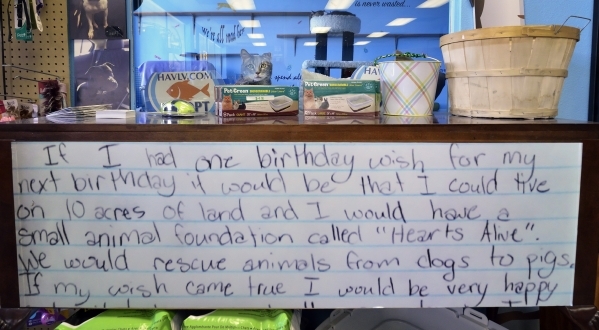 is never wasted...
we're all read for
spend all
HAVLV.COM
HA
PT
PetGreen
PetGreen
If I had one birthday wish for my
next birthday it would be that I could live
on 10 acres of land and I would have a
small animal foundation called "Hearts Alive".
We would rescue animals from dogs to pigs.
If my wish came true I would be very happy